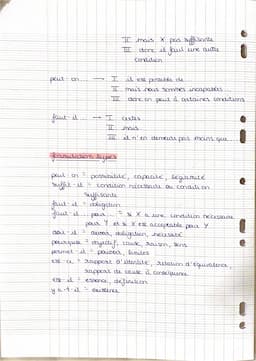 II mais X pas suffisante
III donc il faut une autre
condition
peut-on ... → I il est possible de
II mais nous sommes incapables
III donc on peut à certaines conditions
faut-il → I certes
II mais
III il n'en demeure pas moins que
formulations types
peut-on = possibilité, capacité, légitimité
suffit-il = condition nécessaire ou condition
suffisante
faut-il = obligation
faut-il ... pour ... = si X a une condition nécessaire
pour Y et si X est acceptable pour Y
doit-il = devoir, obligation, nécessité
pourquoi = objectif, cause, raison, sens
permet-il = pouvoir, limites
est-ce = rapport d'identité, relation d'équivalence,
rapport de cause à conséquence
est-il = essence, définition
y a-t-il = existence